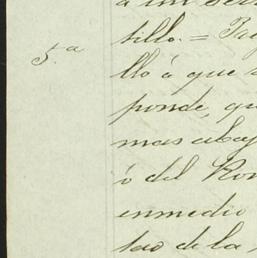 a un
tillo. =
5.ª
lló á que
ponde, qu
mas abaj
ó del Ron
enmedio
tao de la